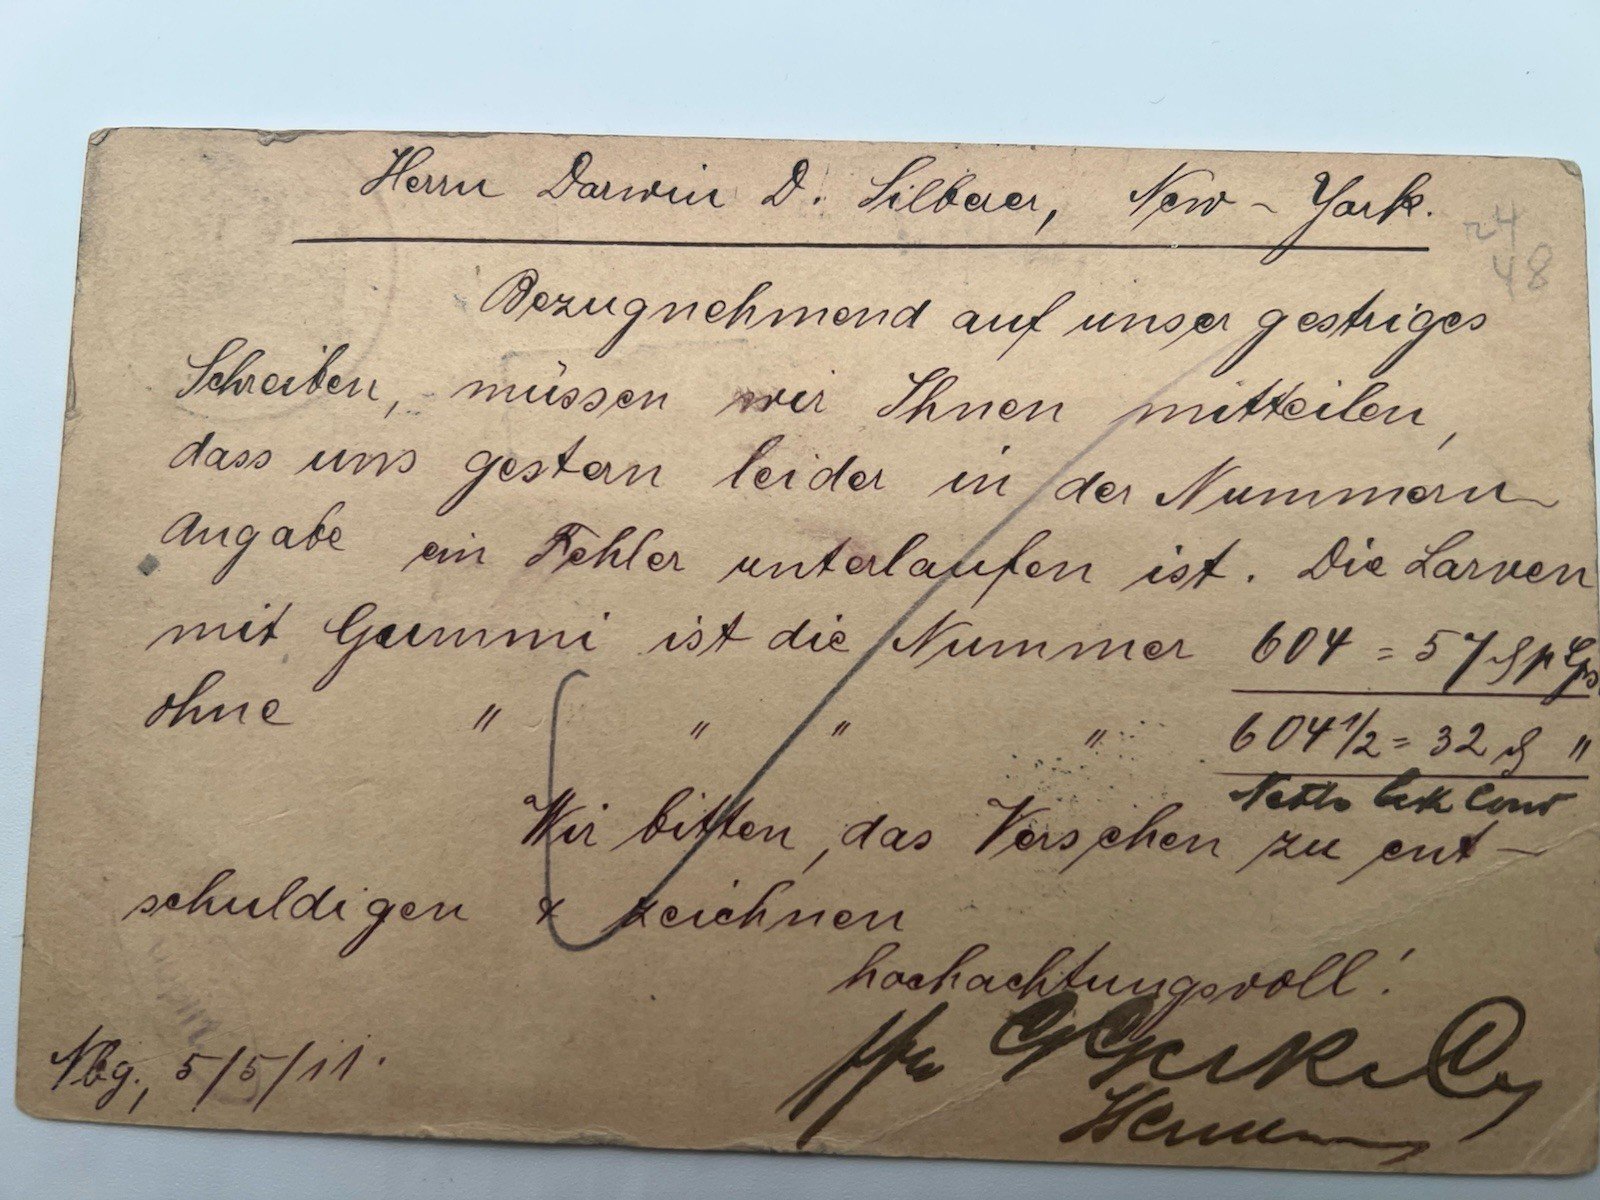 Herrn Darwin D. Silberer, New-York.
24
48
Bezugnehmend auf unser gestriges
Schreiben, müssen wir Ihnen mitteilen,
dass uns gestern leider in der Nummern
Angabe ein Fehler unterlaufen ist. Die Larven
mit Gummi ist die Nummer 604 = 57
ohne " " " " 604 1/2 = 32 "
Netto
Wir bitten, das Versehen zu ent-
schuldigen & zeichnen
hochachtungsvoll!
Nbg., 5/5/11.